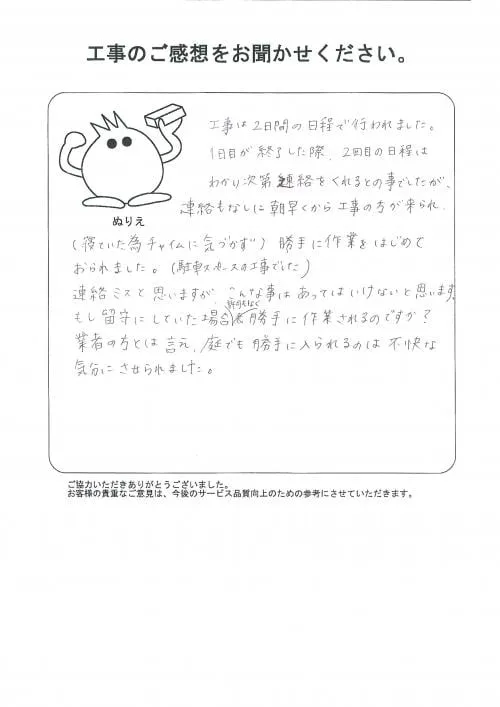 工事のご感想をお聞かせください。
工事は2日間の日程で行われました。
1日目が終了した際、2回目の日程は
わかり次第連絡をくれるとの事でしたが、
連絡もなしに朝早くから工事の方が来られ、
ぬりえ
(寝ていた為チャイムに気づかず)勝手に作業をはじめて
おられました。(駐車スペースの工事でした)
連絡ミスと思いますが、こんな事はあってはいけないと思います。
もし留守にしていた場合も勝手に作業されるのですか?
業者の方とは言え、庭でも勝手に入られるのは不快な
気分にさせられました。
ご協力いただきありがとうございました。
お客様の貴重なご意見は、今後のサービス品質向上のための参考にさせていただきます。